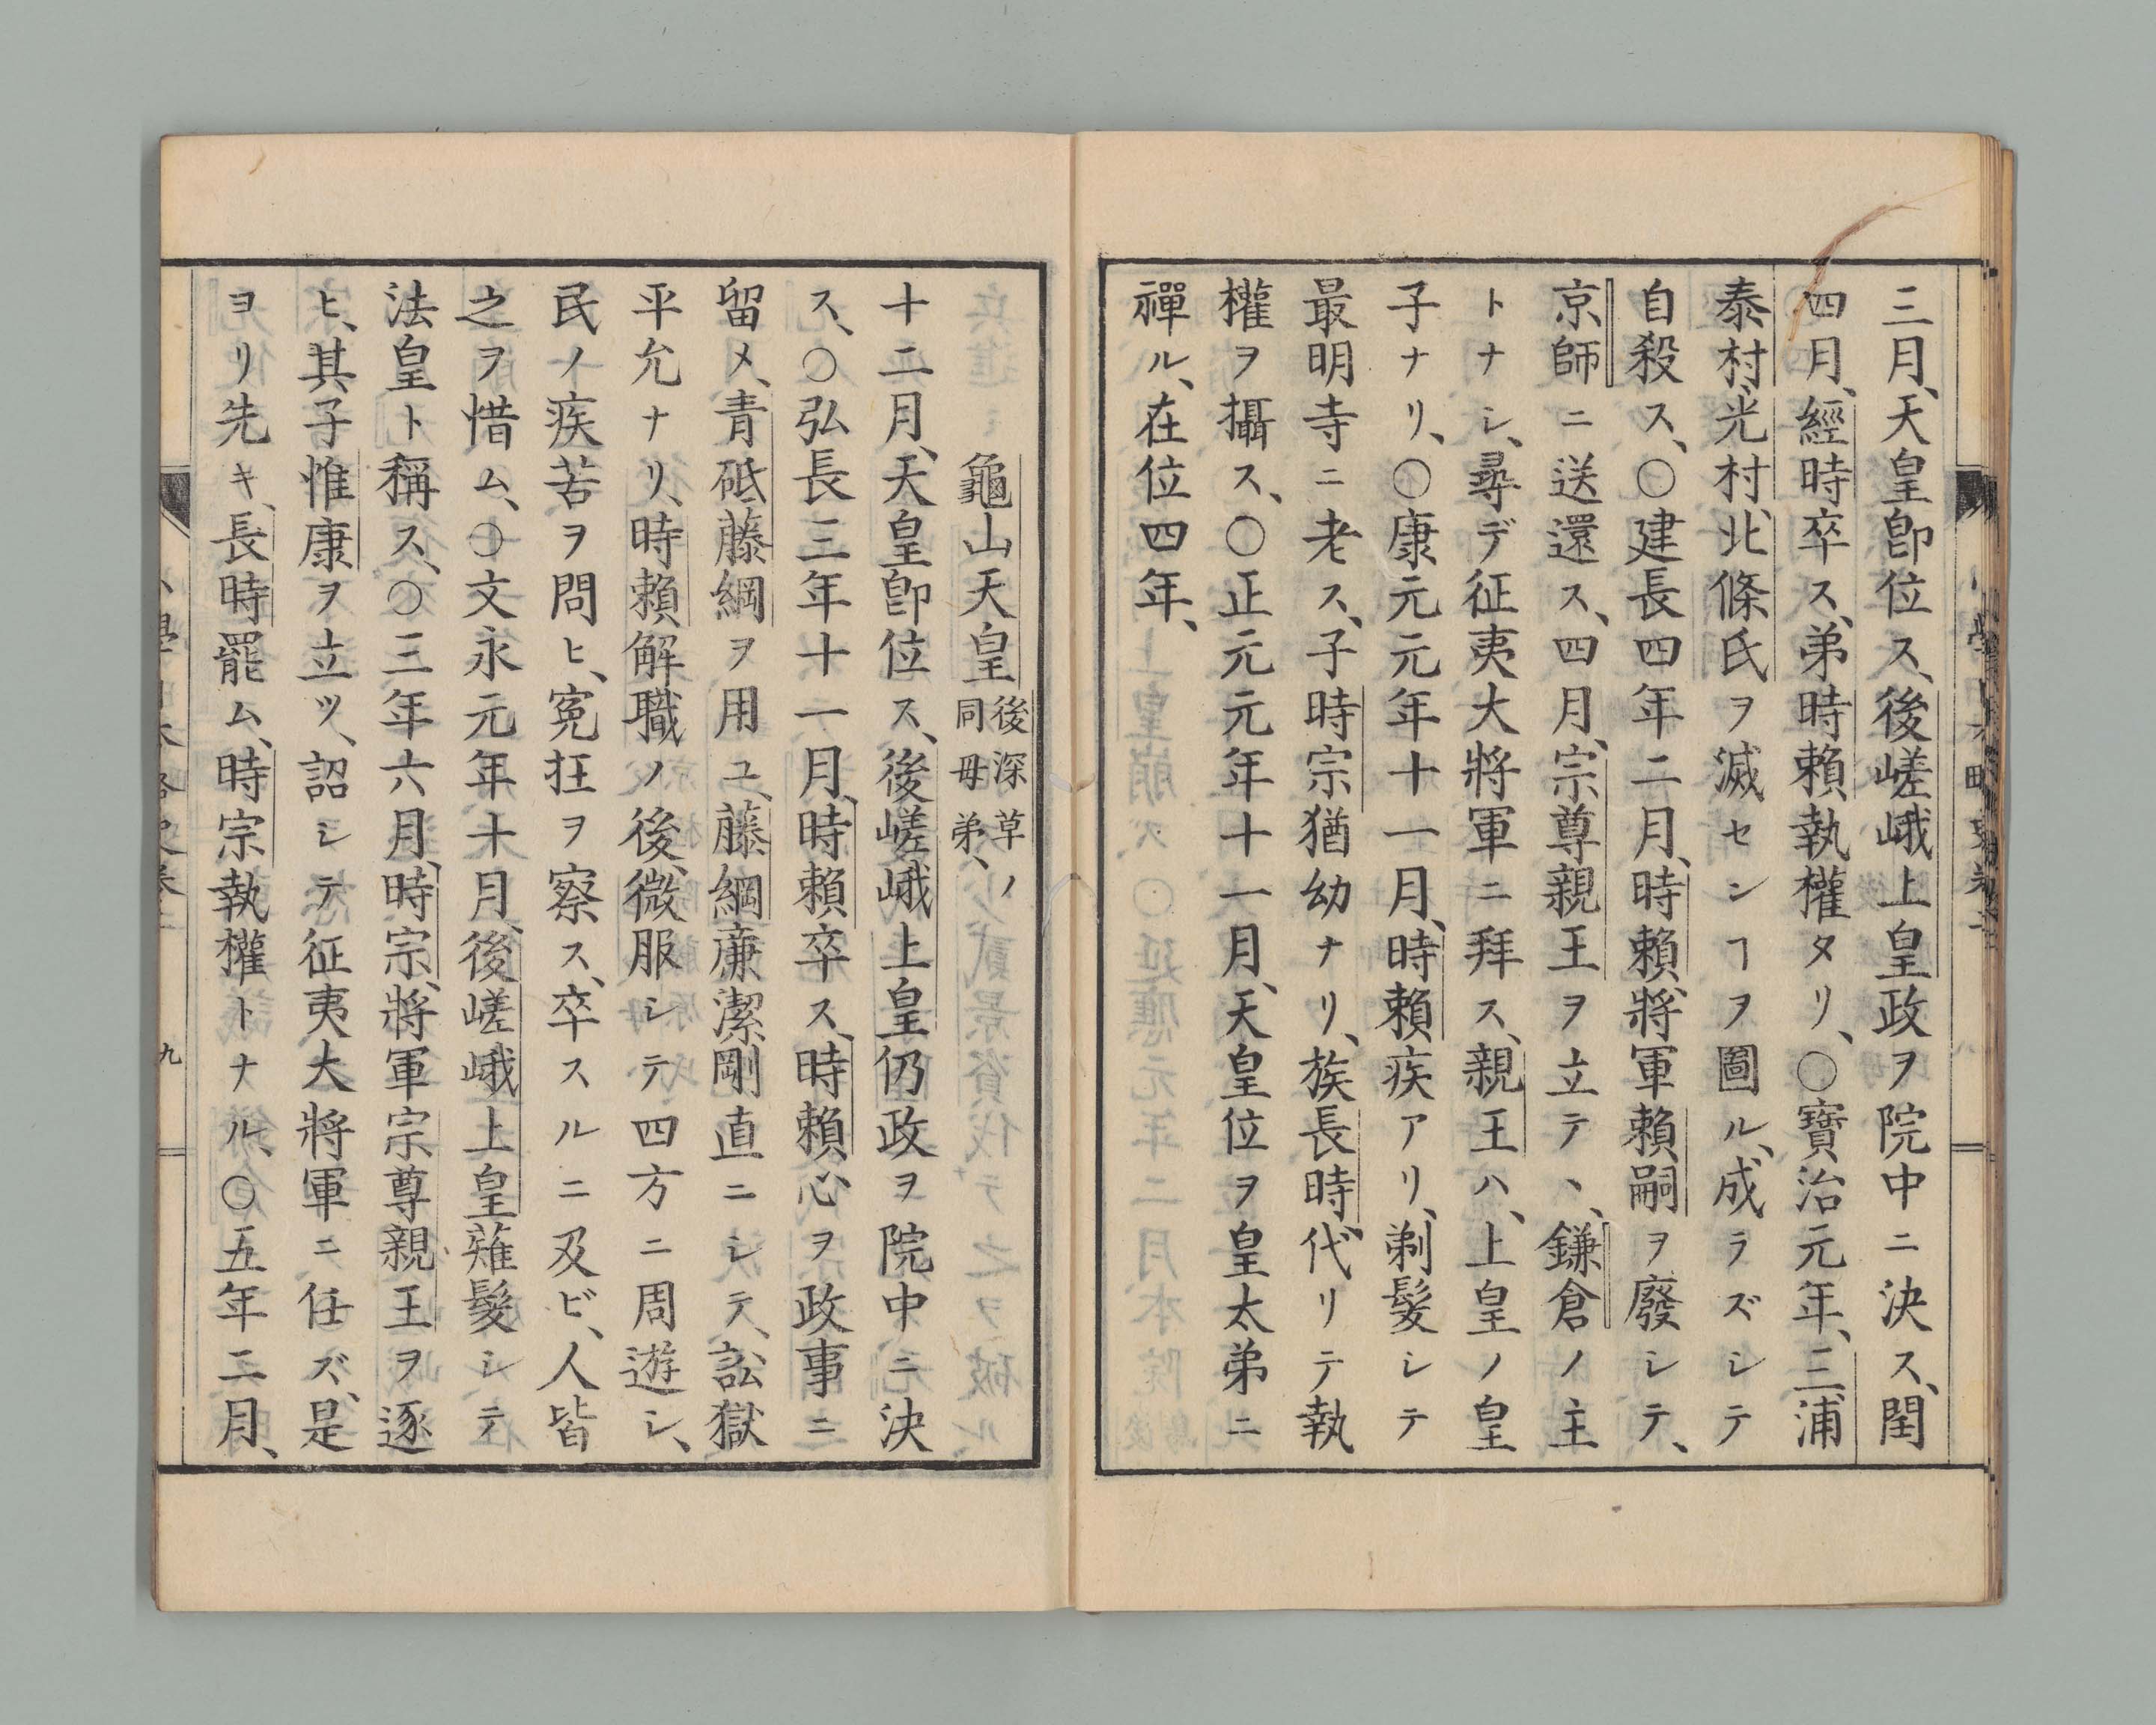 三月、天皇卽位ス、後嵯峨上皇政ヲ院中ニ決ス、閏
四月、經時卒ス、弟時賴執權タリ、○寶治元年、三浦
泰村、光村、北條氏ヲ滅センヿヲ圖ル、成ラズシテ
自殺ス、○建長四年二月、時賴、將軍賴嗣ヲ廢シテ、
京師ニ送還ス、四月、宗尊親王ヲ立テヽ、鎌倉ノ主
トナシ、尋デ征夷大將軍ニ拜ス、親王ハ、上皇ノ皇
子ナリ、○康元元年十一月、時賴疾アリ、剃髮シテ
最明寺ニ老ス、子時宗猶幼ナリ、族長時、代リテ執
權ヲ攝ス、○正元元年十一月、天皇位ヲ皇太弟ニ
禪ル、在位四年、
龜山天皇 後深草ノ
同母弟、
十二月、天皇卽位ス、後嵯峨上皇仍政ヲ院中ニ決
ス、○弘長三年十一月、時賴卒ス、時賴心ヲ政事ニ
留メ、青砥藤綱ヲ用ユ、藤綱廉潔剛直ニシテ、訟獄
平允ナリ、時賴解職ノ後、微服シテ四方ニ周遊シ、
民ノ疾苦ヲ問ヒ、寃狂ヲ察ス、卒スルニ及ビ、人皆
之ヲ惜ム、○文永元年十月、後嵯峨上皇薙髮シテ
法皇ト稱ス、○三年六月、時宗、將軍宗尊親王ヲ逐
ヒ、其子惟康ヲ立ツ、詔シテ征夷大將軍ニ任ズ、是
ヨリ先キ、長時罷ム、時宗執權トナル、○五年二月、
九